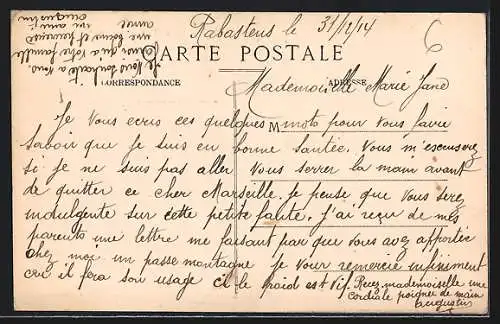 Rabastens le 31/12/14
Je vous souhaite à vous
ainsi qu'à votre famille
une bonne et heureuse
année
un ami
Augustin
CARTE POSTALE
CORRESPONDANCE
ADRESSE
Mademoiselle Marie Jane
M
Je vous ecris ces quelques mots pour vous faire
savoir que je suis en bonne santée. Vous m'escuserez
si je ne suis pas aller vous serrer la main avant
de quitter ce cher Marseille. je pense que vous serez
indulgente sur cette petite faute. J'ai reçu de mes
parents une lettre me faisant par que vous avez apportée
chez moi un passe montagne je vous remercie infiniment
car il fera son usage ci le froid est vif. Recez mademoiselle une
cordiale poignee de main
Augustin